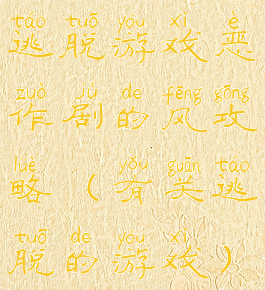 táo tuō yóu xì è
逃脱游戏恶
zuò jù de fēng gōng
作剧的风攻
lüè ( yǒu guān táo
略（有关逃
tuō de yóu xì )
脱的游戏）